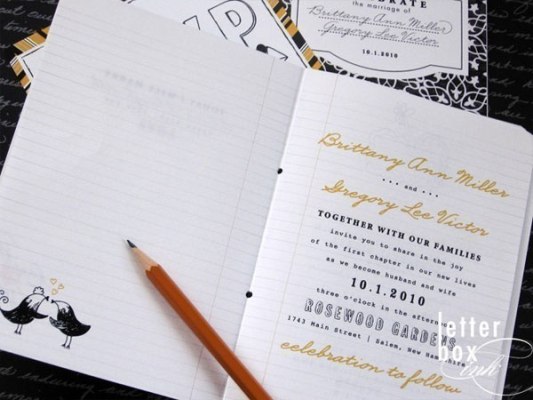 ELEBRATE
the marriage of
Brittany Ann Miller
Gregory Lee Victor
10.1.2010
Brittany Ann Miller
and
Gregory Lee Victor
TOGETHER WITH OUR FAMILIES
invite you to share in the joy
of the first chapter in our new lives
as we become husband and wife
10.1.2010
three o'clock in the afternoon
ROSEWOOD GARDENS
1743 Main Street | Salem, New Hampshire
celebration to follow
letter
box
ink